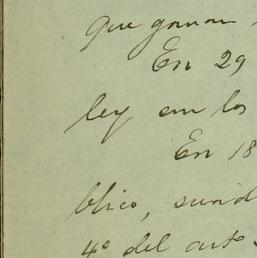 que gozan
En 29
ley en los
En 18
blico, siend
4º del auto